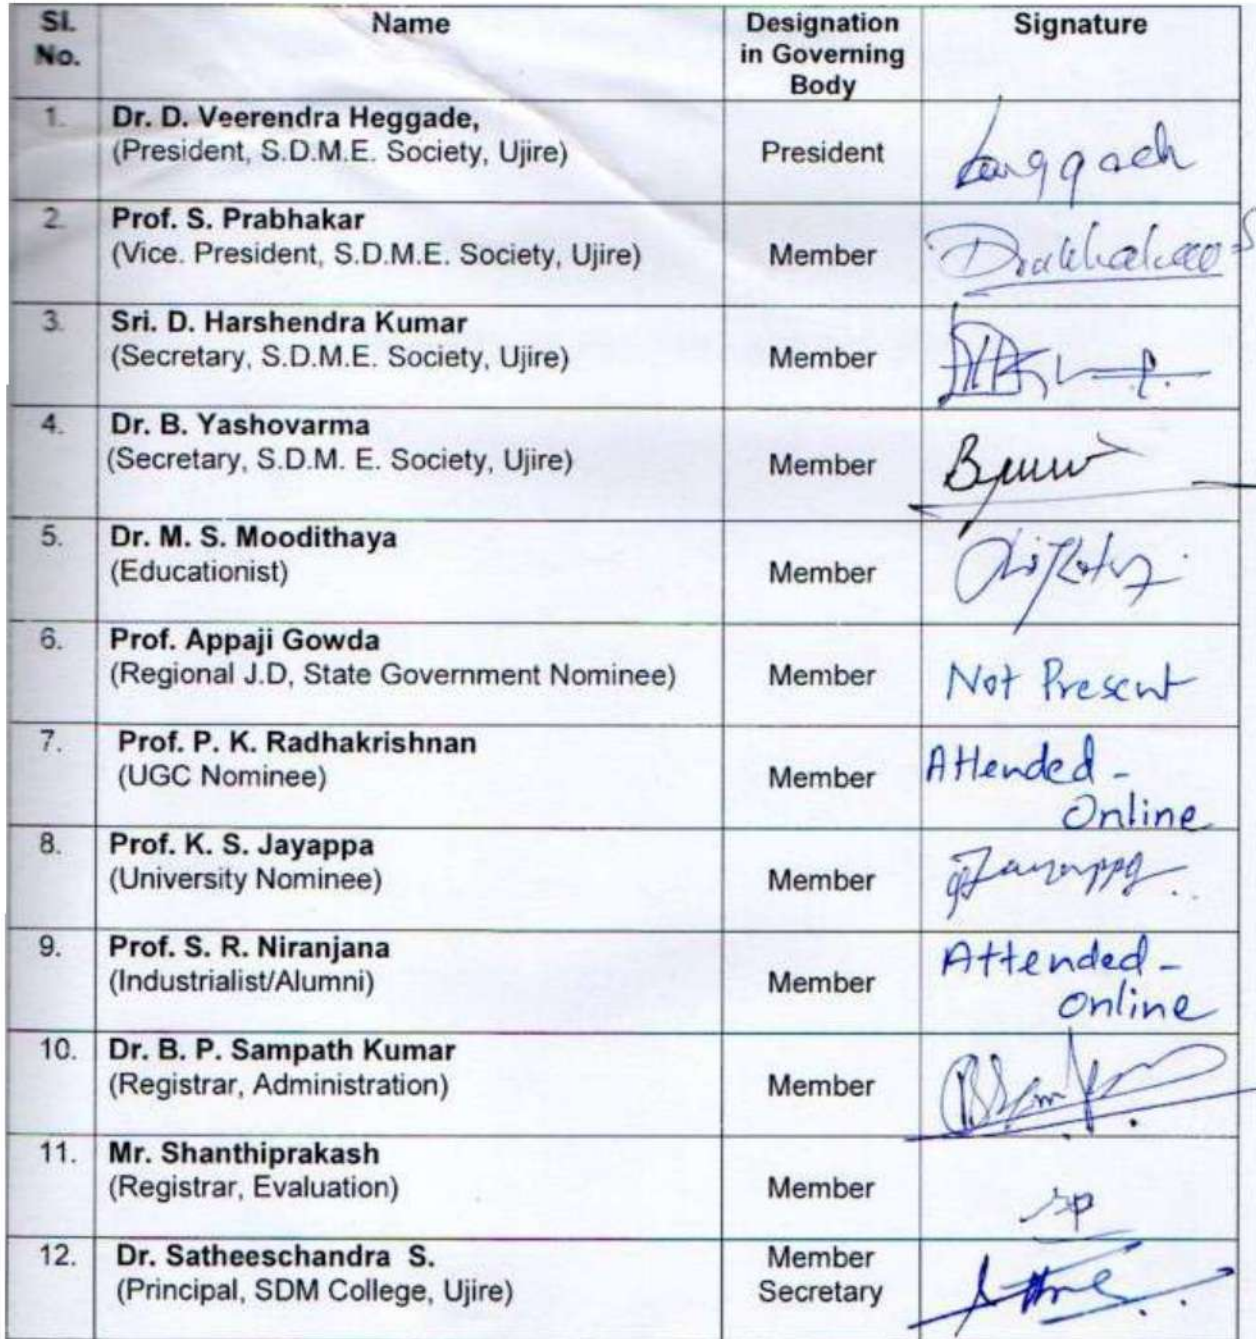 Sl. No. Name Designation in Governing Body Signature
1. Dr. D. Veerendra Heggade,
(President, S.D.M.E. Society, Ujire) President
2. Prof. S. Prabhakar
(Vice. President, S.D.M.E. Society, Ujire) Member
3. Sri. D. Harshendra Kumar
(Secretary, S.D.M.E. Society, Ujire) Member
4. Dr. B. Yashovarma
(Secretary, S.D.M. E. Society, Ujire) Member
5. Dr. M. S. Moodithaya
(Educationist) Member
6. Prof. Appaji Gowda
(Regional J.D, State Government Nominee) Member Not Present
7. Prof. P. K. Radhakrishnan
(UGC Nominee) Member Attended -
Online
8. Prof. K. S. Jayappa
(University Nominee) Member
9. Prof. S. R. Niranjana
(Industrialist/Alumni) Member Attended -
Online
10. Dr. B. P. Sampath Kumar
(Registrar, Administration) Member
11. Mr. Shanthiprakash
(Registrar, Evaluation) Member
12. Dr. Satheeschandra S.
(Principal, SDM College, Ujire) Member Secretary